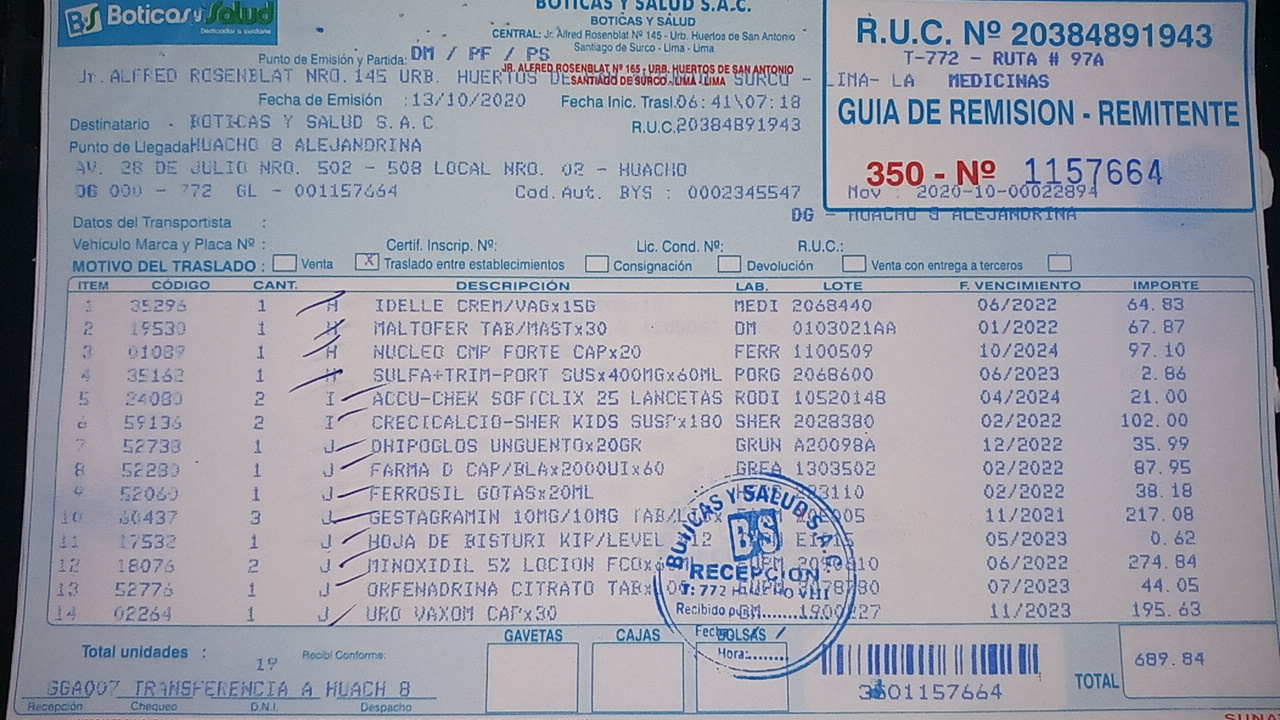 BS Boticas y Salud
Dedicados a cuidarte
BOTICAS Y SALUD S.A.C.
BOTICAS Y SALUD
CENTRAL: Jr. Alfred Rosenblat Nº 145 - Urb. Huertos de San Antonio
Santiago de Surco - Lima - Lima
R.U.C. Nº 20384891943
T-772 - RUTA # 97A
Punto de Emisión y Partida: DM / PF / PS
JR. ALFRED ROSENBLAT Nº 165 - URB. HUERTOS DE SAN ANTONIO
SANTIAGO DE SURCO - LIMA - LIMA
Jr. ALFRED ROSENBLAT NRO. 145 URB. HUERTOS DE SURCO - LIMA- LA MEDICINAS
Fecha de Emisión :13/10/2020 Fecha Inic. Trasl.06:41\07:18
GUIA DE REMISION - REMITENTE
Destinatario - BOTICAS Y SALUD S.A.C. R.U.C.20384891943
Punto de Llegada HUACHO 8 ALEJANDRINA
AV. 28 DE JULIO NRO. 502 - 508 LOCAL NRO. 02 - HUACHO
350 - Nº 1157664
DG 000 - 772 GL - 001157664 Cod.Aut. BYS : 0002345547 Mov : 2020-10-00022894
DG - HUACHO 8 ALEJANDRINA
Datos del Transportista :
Vehiculo Marca y Placa Nº : Certif. Inscrip. Nº: Lic. Cond. Nº: R.U.C.:
MOTIVO DEL TRASLADO : Venta X Traslado entre establecimientos Consignación Devolución Venta con entrega a terceros
ITEM CÓDIGO CANT. DESCRIPCIÓN LAB. LOTE F. VENCIMIENTO IMPORTE
1 35296 1 H IDELLE CREM/VAGx15G MEDI 2068440 06/2022 64.83
2 19530 1 H MALTOFER TAB/MASTx30 DM 0103021AA 01/2022 67.87
3 01089 1 H NUCLEO CMP FORTE CAPx20 FERR 1100509 10/2024 97.10
4 35162 1 H SULFA+TRIM-PORT SUSx400MGx60ML PORG 2068600 06/2023 2.86
5 24080 2 I ACCU-CHEK SOFTCLIX 25 LANCETAS RODI 10520148 04/2024 21.00
6 59136 2 I CRECICALCIO-SHER KIDS SUSPx180 SHER 2028380 02/2022 102.00
7 52738 1 J DHIPOGLOS UNGUENTOx20GR GRUN A20098A 12/2022 35.99
8 52280 1 J FARMA D CAP/BLAx2000UIx60 GREA 1303502 02/2022 87.95
9 52060 1 J FERROSIL GOTASx20ML 02/2022 38.18
10 60437 3 J GESTAGRAMIN 10MG/10MG 11/2021 217.08
11 17532 1 J HOJA DE BISTURI KIP/LEVEL 05/2023 0.62
12 18076 2 J MINOXIDIL 5% LOCION 06/2022 274.84
13 52776 1 J ORFENADRINA CITRATO 07/2023 44.05
14 02264 1 J URO VAXOM CAPx30 11/2023 195.63
BOTICAS Y SALUD S.A.C.
BS
RECEPCION
T: 772 HUACHO VIII
Recibido por:
Fecha: / /
Hora:
Total unidades : 19 Recibí Conforme: GAVETAS CAJAS BOLSAS
TOTAL 689.84
GGA007 TRANSFERENCIA A HUACH 8
Recepción Chequeo D.N.I. Despacho
01157664